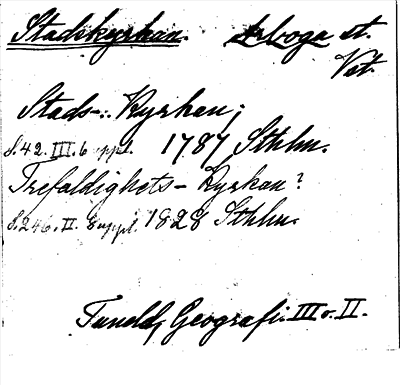 Stadskyrkan. Arboga st.
Vst.
Stads-: Kyrkan;
S. 42. III. 6 uppl. 1787 Sthlm.
Trefaldighets-Kyrkan?
S. 246. II. 8 uppl. 1828 Sthlm.
Tuneld, Geografi. III o. II.